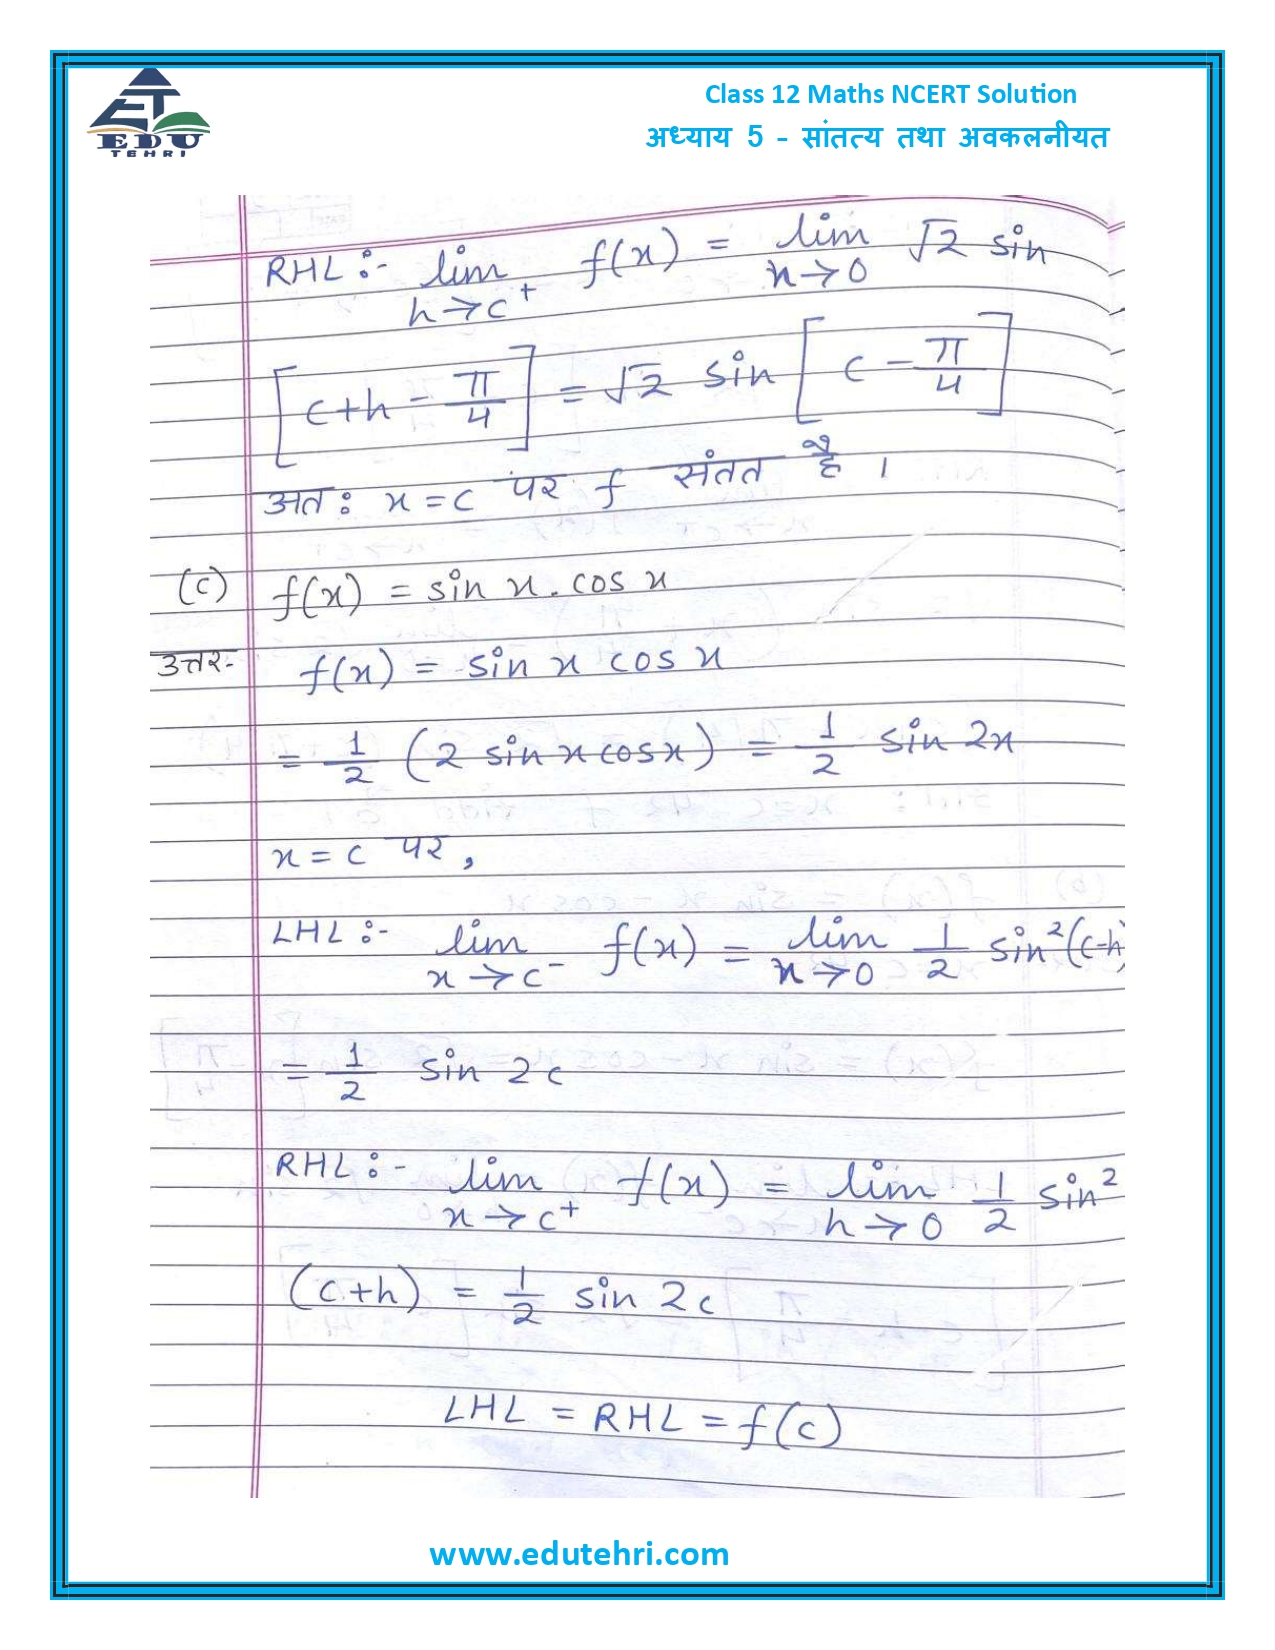 EDU
TEHRI
Class 12 Maths NCERT Solution
अध्याय 5 - सांतत्य तथा अवकलनीयत
RHL :- lim h→c⁺ f(x) = lim x→0 √2 sin
[c+h - π/4] = √2 sin [c - π/4]
अत: x = c पर f संतत है ।
(c) f(x) = sin x . cos x
उत्तर:- f(x) = sin x cos x
= 1/2 (2 sin x cos x) = 1/2 sin 2x
x = c पर,
LHL :- lim x→c⁻ f(x) = lim x→0 1/2 sin²(c-h)
= 1/2 sin 2c
RHL :- lim x→c⁺ f(x) = lim h→0 1/2 sin²
(c+h) = 1/2 sin 2c
LHL = RHL = f(c)
www.edutehri.com